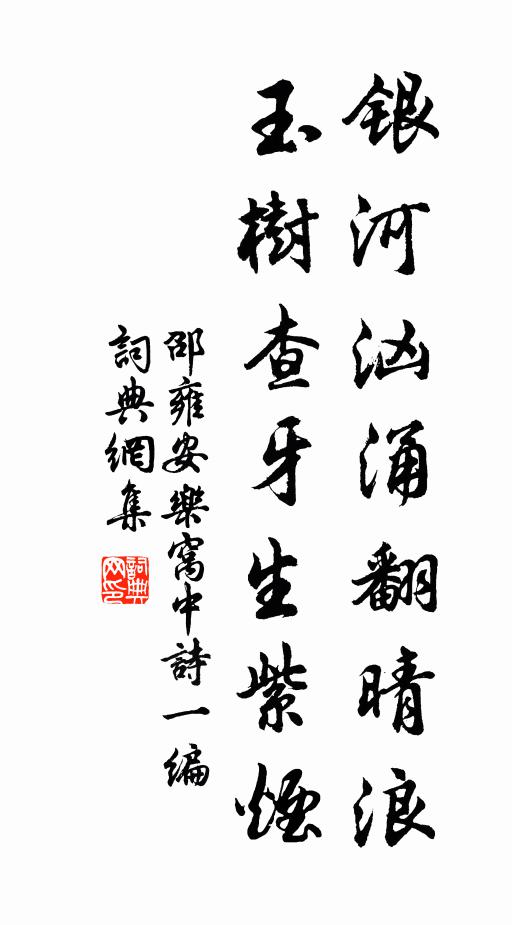 銀河汹涌翻晴浪
玉樹查牙生紫煙
邵雍安樂窩中詩一編
詞典網集
詞典网印